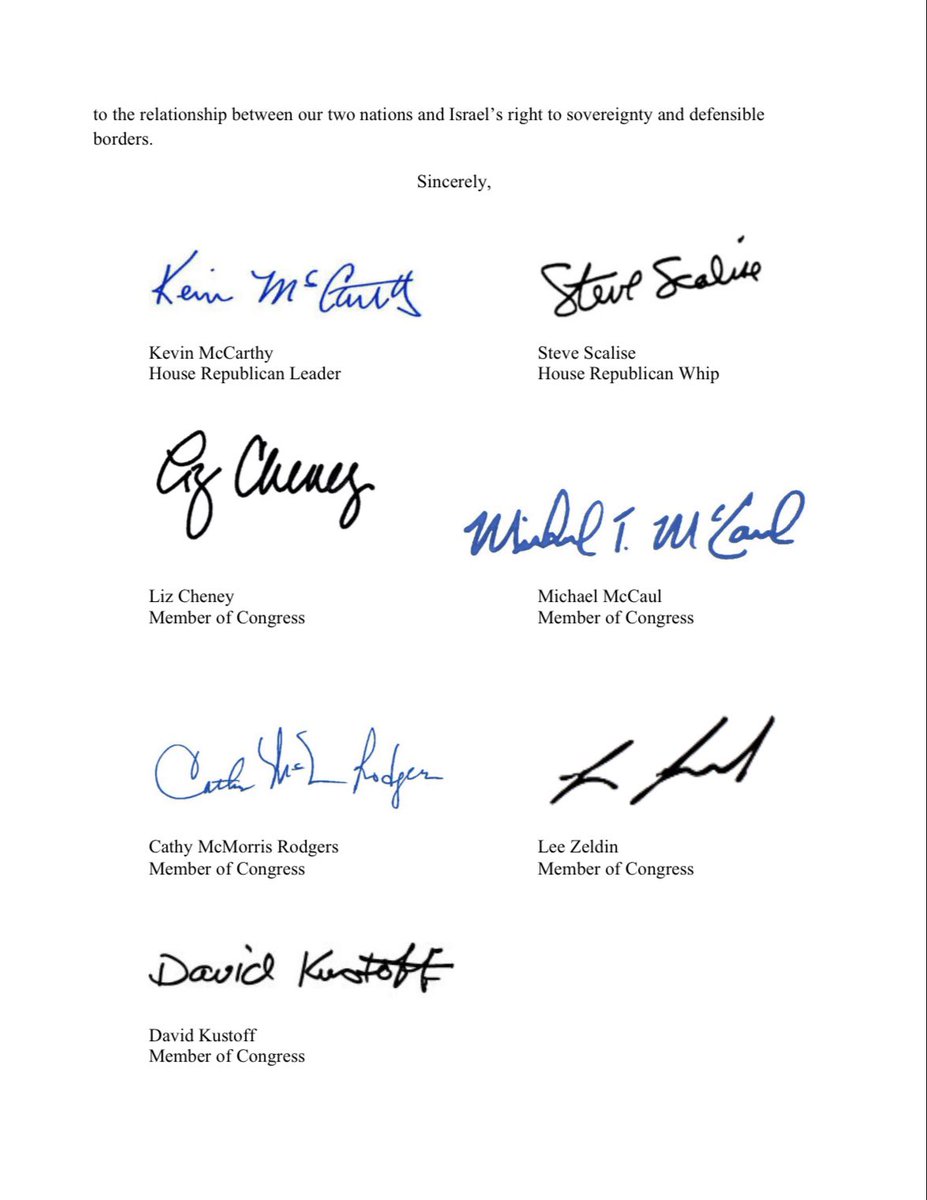 to the relationship between our two nations and Israel’s right to sovereignty and defensible
borders.
Sincerely,
Kevin McCarthy
Steve Scalise
Kevin McCarthy
House Republican Leader
Steve Scalise
House Republican Whip
Liz Cheney
Michael T. McCaul
Liz Cheney
Member of Congress
Michael McCaul
Member of Congress
Cathy McM Rodgers
Cathy McMorris Rodgers
Member of Congress
Lee Zeldin
Member of Congress
David Kustoff
David Kustoff
Member of Congress